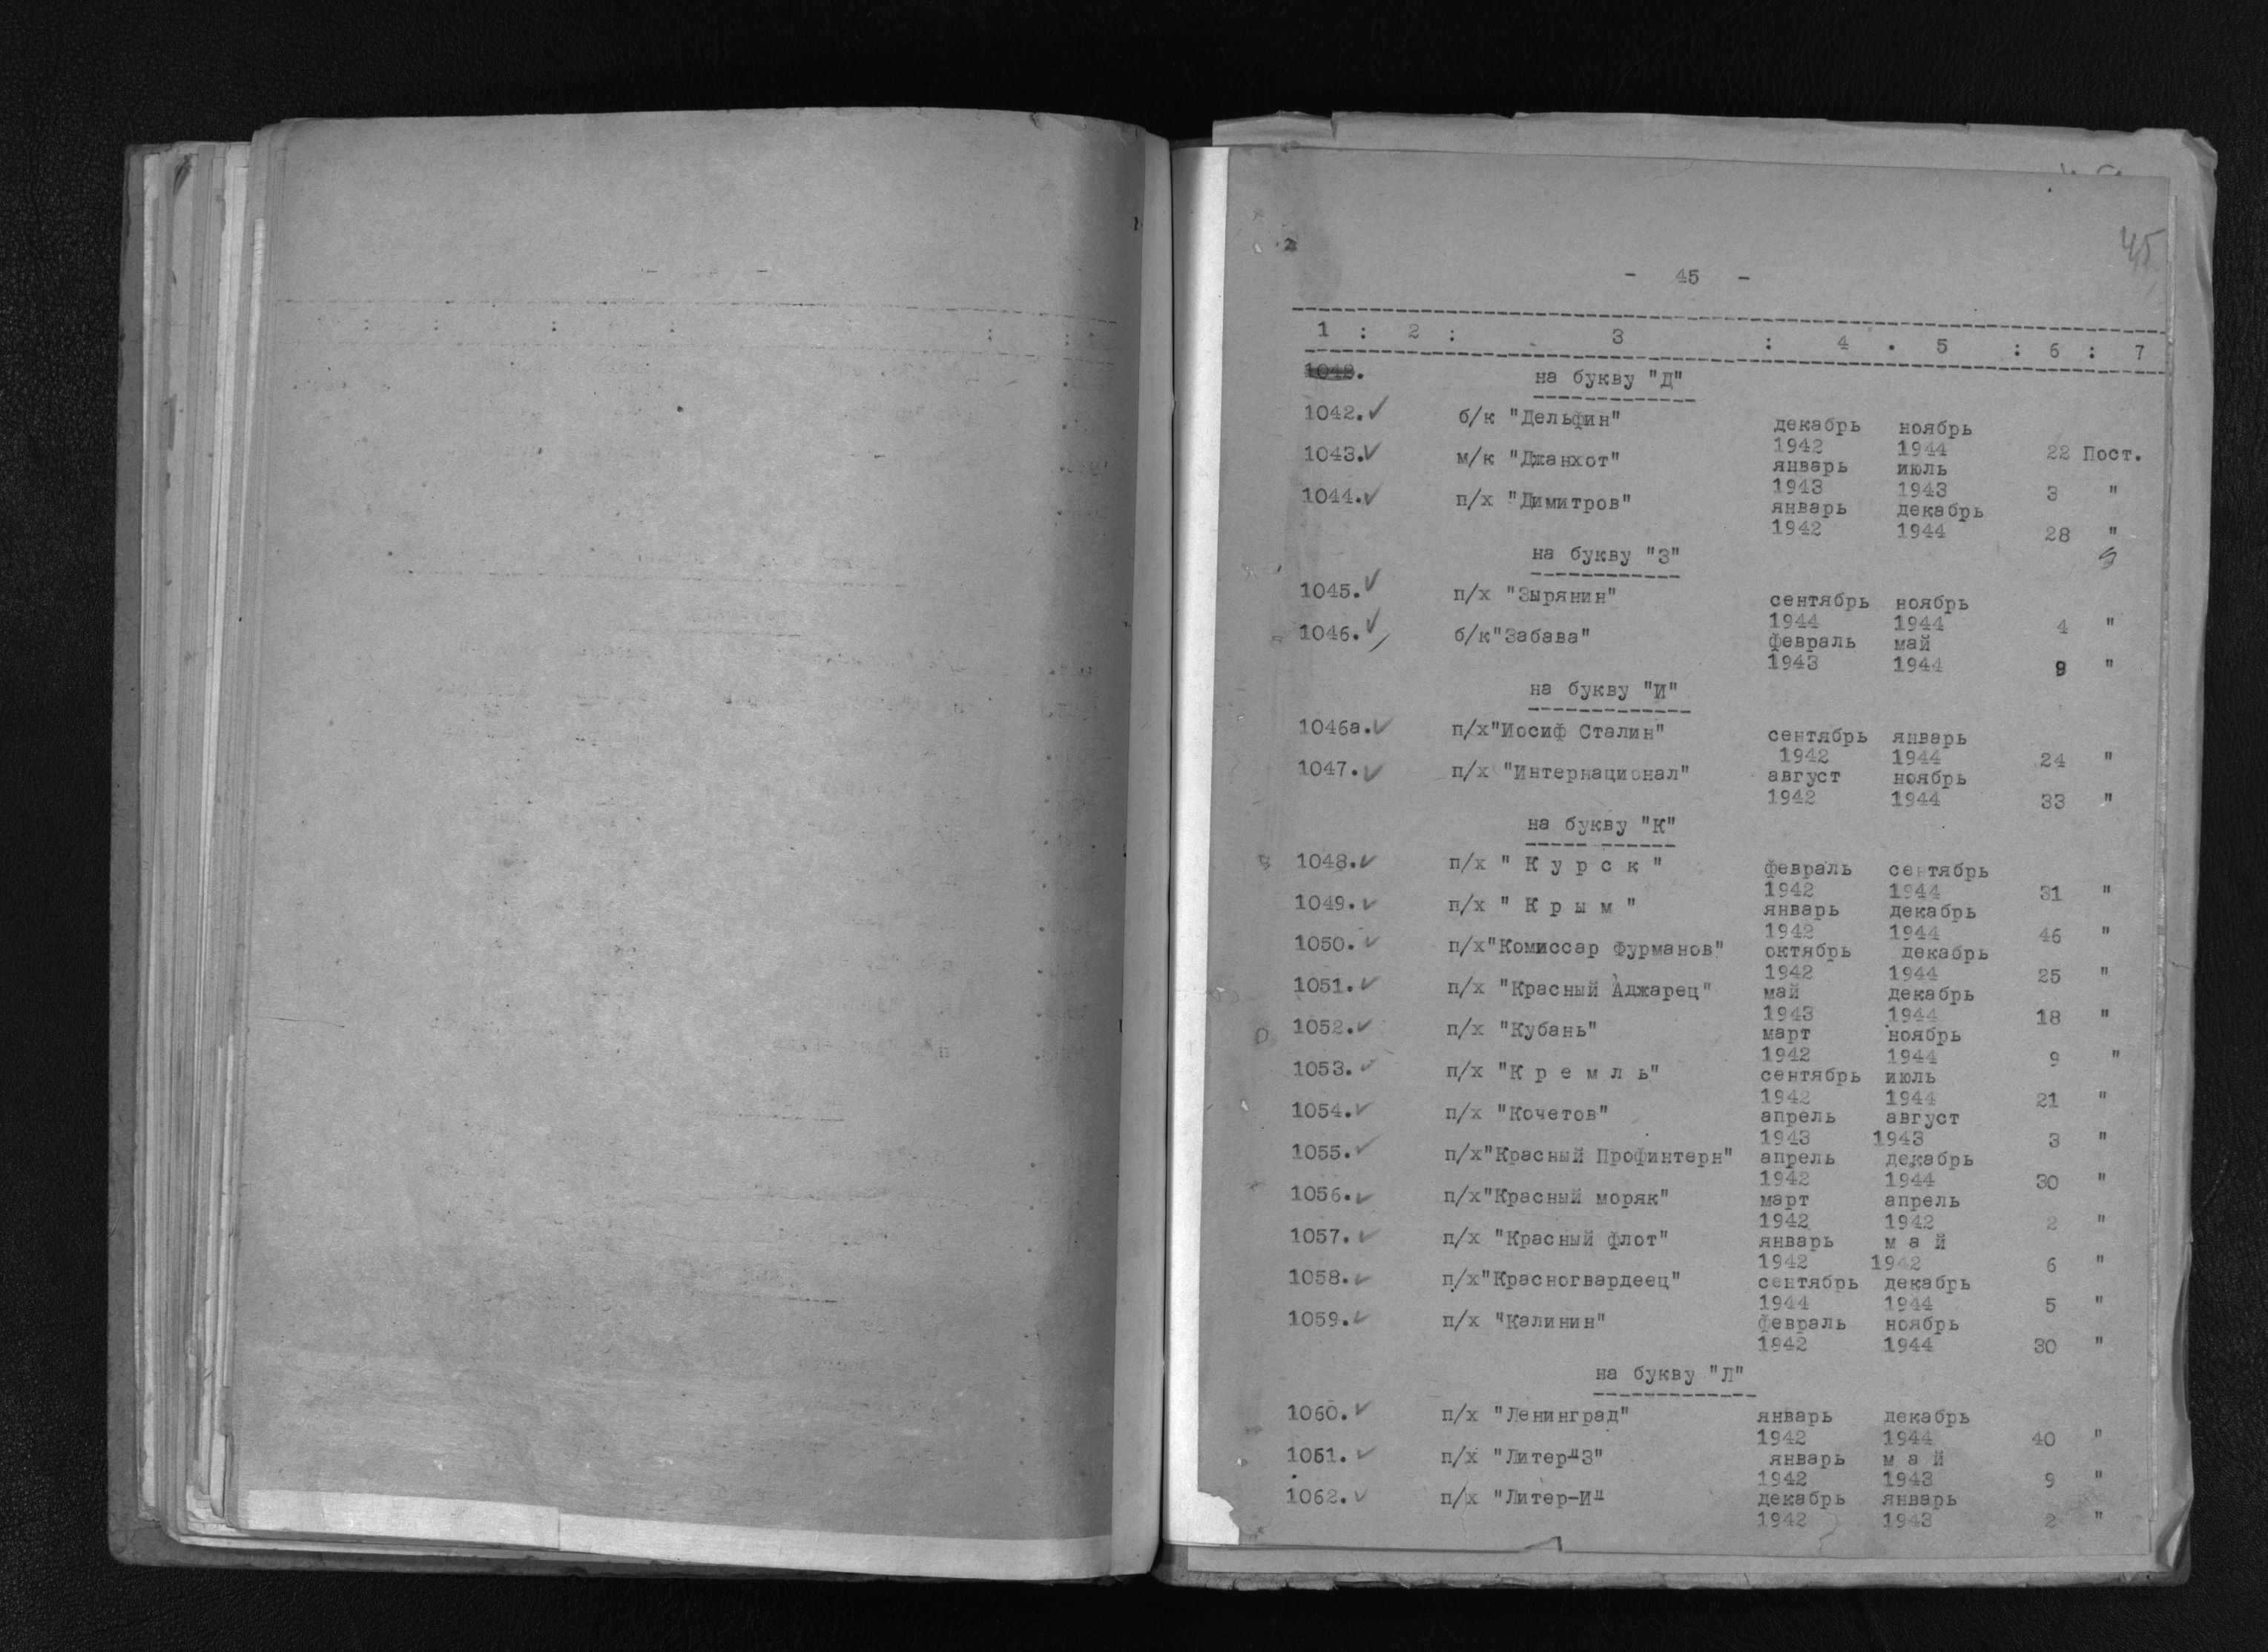 45
- 45 -
1 : 2 : 3 : 4 . 5 : 6 : 7
1042.
на букву "Д"
1042. б/к "Дельфин" декабрь ноябрь
1942 1944 22 Пост.
1043. м/к "Джанхот" январь июль
1943 1943 3 "
1044. п/х "Димитров" январь декабрь
1942 1944 28 "
на букву "З"
1045. п/х "Зырянин" сентябрь ноябрь
1944 1944 4 "
1046. б/к"Забава" февраль май
1943 1944 9 "
на букву "И"
1046а. п/х"Иосиф Сталин" сентябрь январь
1942 1944 24 "
1047. п/х "Интернационал" август ноябрь
1942 1944 33 "
на букву "К"
1048. п/х " К у р с к " февраль сентябрь
1942 1944 31 "
1049. п/х " К р ы м " январь декабрь
1942 1944 46 "
1050. п/х"Комиссар Фурманов" октябрь декабрь
1942 1944 25 "
1051. п/х "Красный Аджарец" май декабрь
1943 1944 18 "
1052. п/х "Кубань" март ноябрь
1942 1944 9 "
1053. п/х "К р е м л ь" сентябрь июль
1942 1944 21 "
1054. п/х "Кочетов" апрель август
1943 1943 3 "
1055. п/х"Красный Профинтерн" апрель декабрь
1942 1944 30 "
1056. п/х"Красный моряк" март апрель
1942 1942 2 "
1057. п/х "Красный флот" январь м а й
1942 1942 6 "
1058. п/х"Красногвардеец" сентябрь декабрь
1944 1944 5 "
1059. п/х "Калинин" февраль ноябрь
1942 1944 30 "
на букву "Л"
1060. п/х "Ленинград" январь декабрь
1942 1944 40 "
1061. п/х "Литер-"З" январь м а й
1942 1943 9 "
1062. п/х "Литер-И" декабрь январь
1942 1943 2 "